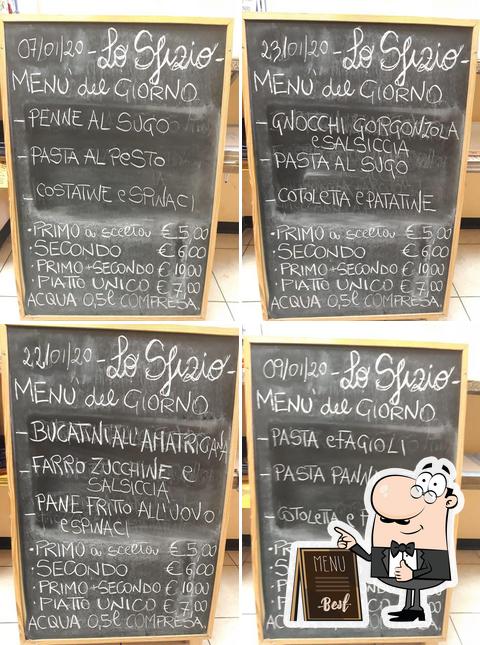 07/01/20 - Lo Sfizio -
MENÙ del GIORNO
- PENNE AL SUGO
- PASTA AL PESTO
- COSTATINE e SPINACI
• PRIMO a scelta € 5,00
• SECONDO € 6,00
• PRIMO + SECONDO € 10,00
• PIATTO UNICO € 7,00
ACQUA 0,5l COMPRESA.
23/01/20 - Lo Sfizio -
MENÙ del GIORNO
- GNOCCHI GORGONZOLA
e SALSICCIA
- PASTA AL SUGO
- COTOLETTA e PATATINE
• PRIMO a scelta € 5,00
• SECONDO € 6,00
• PRIMO + SECONDO € 10,00
• PIATTO UNICO € 7,00
ACQUA 0,5l COMPRESA.
22/01/20 - Lo Sfizio -
MENÙ del GIORNO
- BUCATINI ALL'AMATRIGANA
- FARRO ZUCCHINE e
SALSICCIA
- PANE FRITTO ALL'UOVO
e SPINACI
• PRIMO a scelta € 5,00
• SECONDO € 6,00
• PRIMO + SECONDO € 10,00
• PIATTO UNICO € 7,00
ACQUA 0,5l COMPRESA.
09/01/20 - Lo Sfizio -
MENÙ del GIORNO
- PASTA e FAGIOLI
- PASTA PANN
- COTOLETTA e
• PRIMO
• SECO
• PRIM
• PIAT
ACQUA
MENU
Best